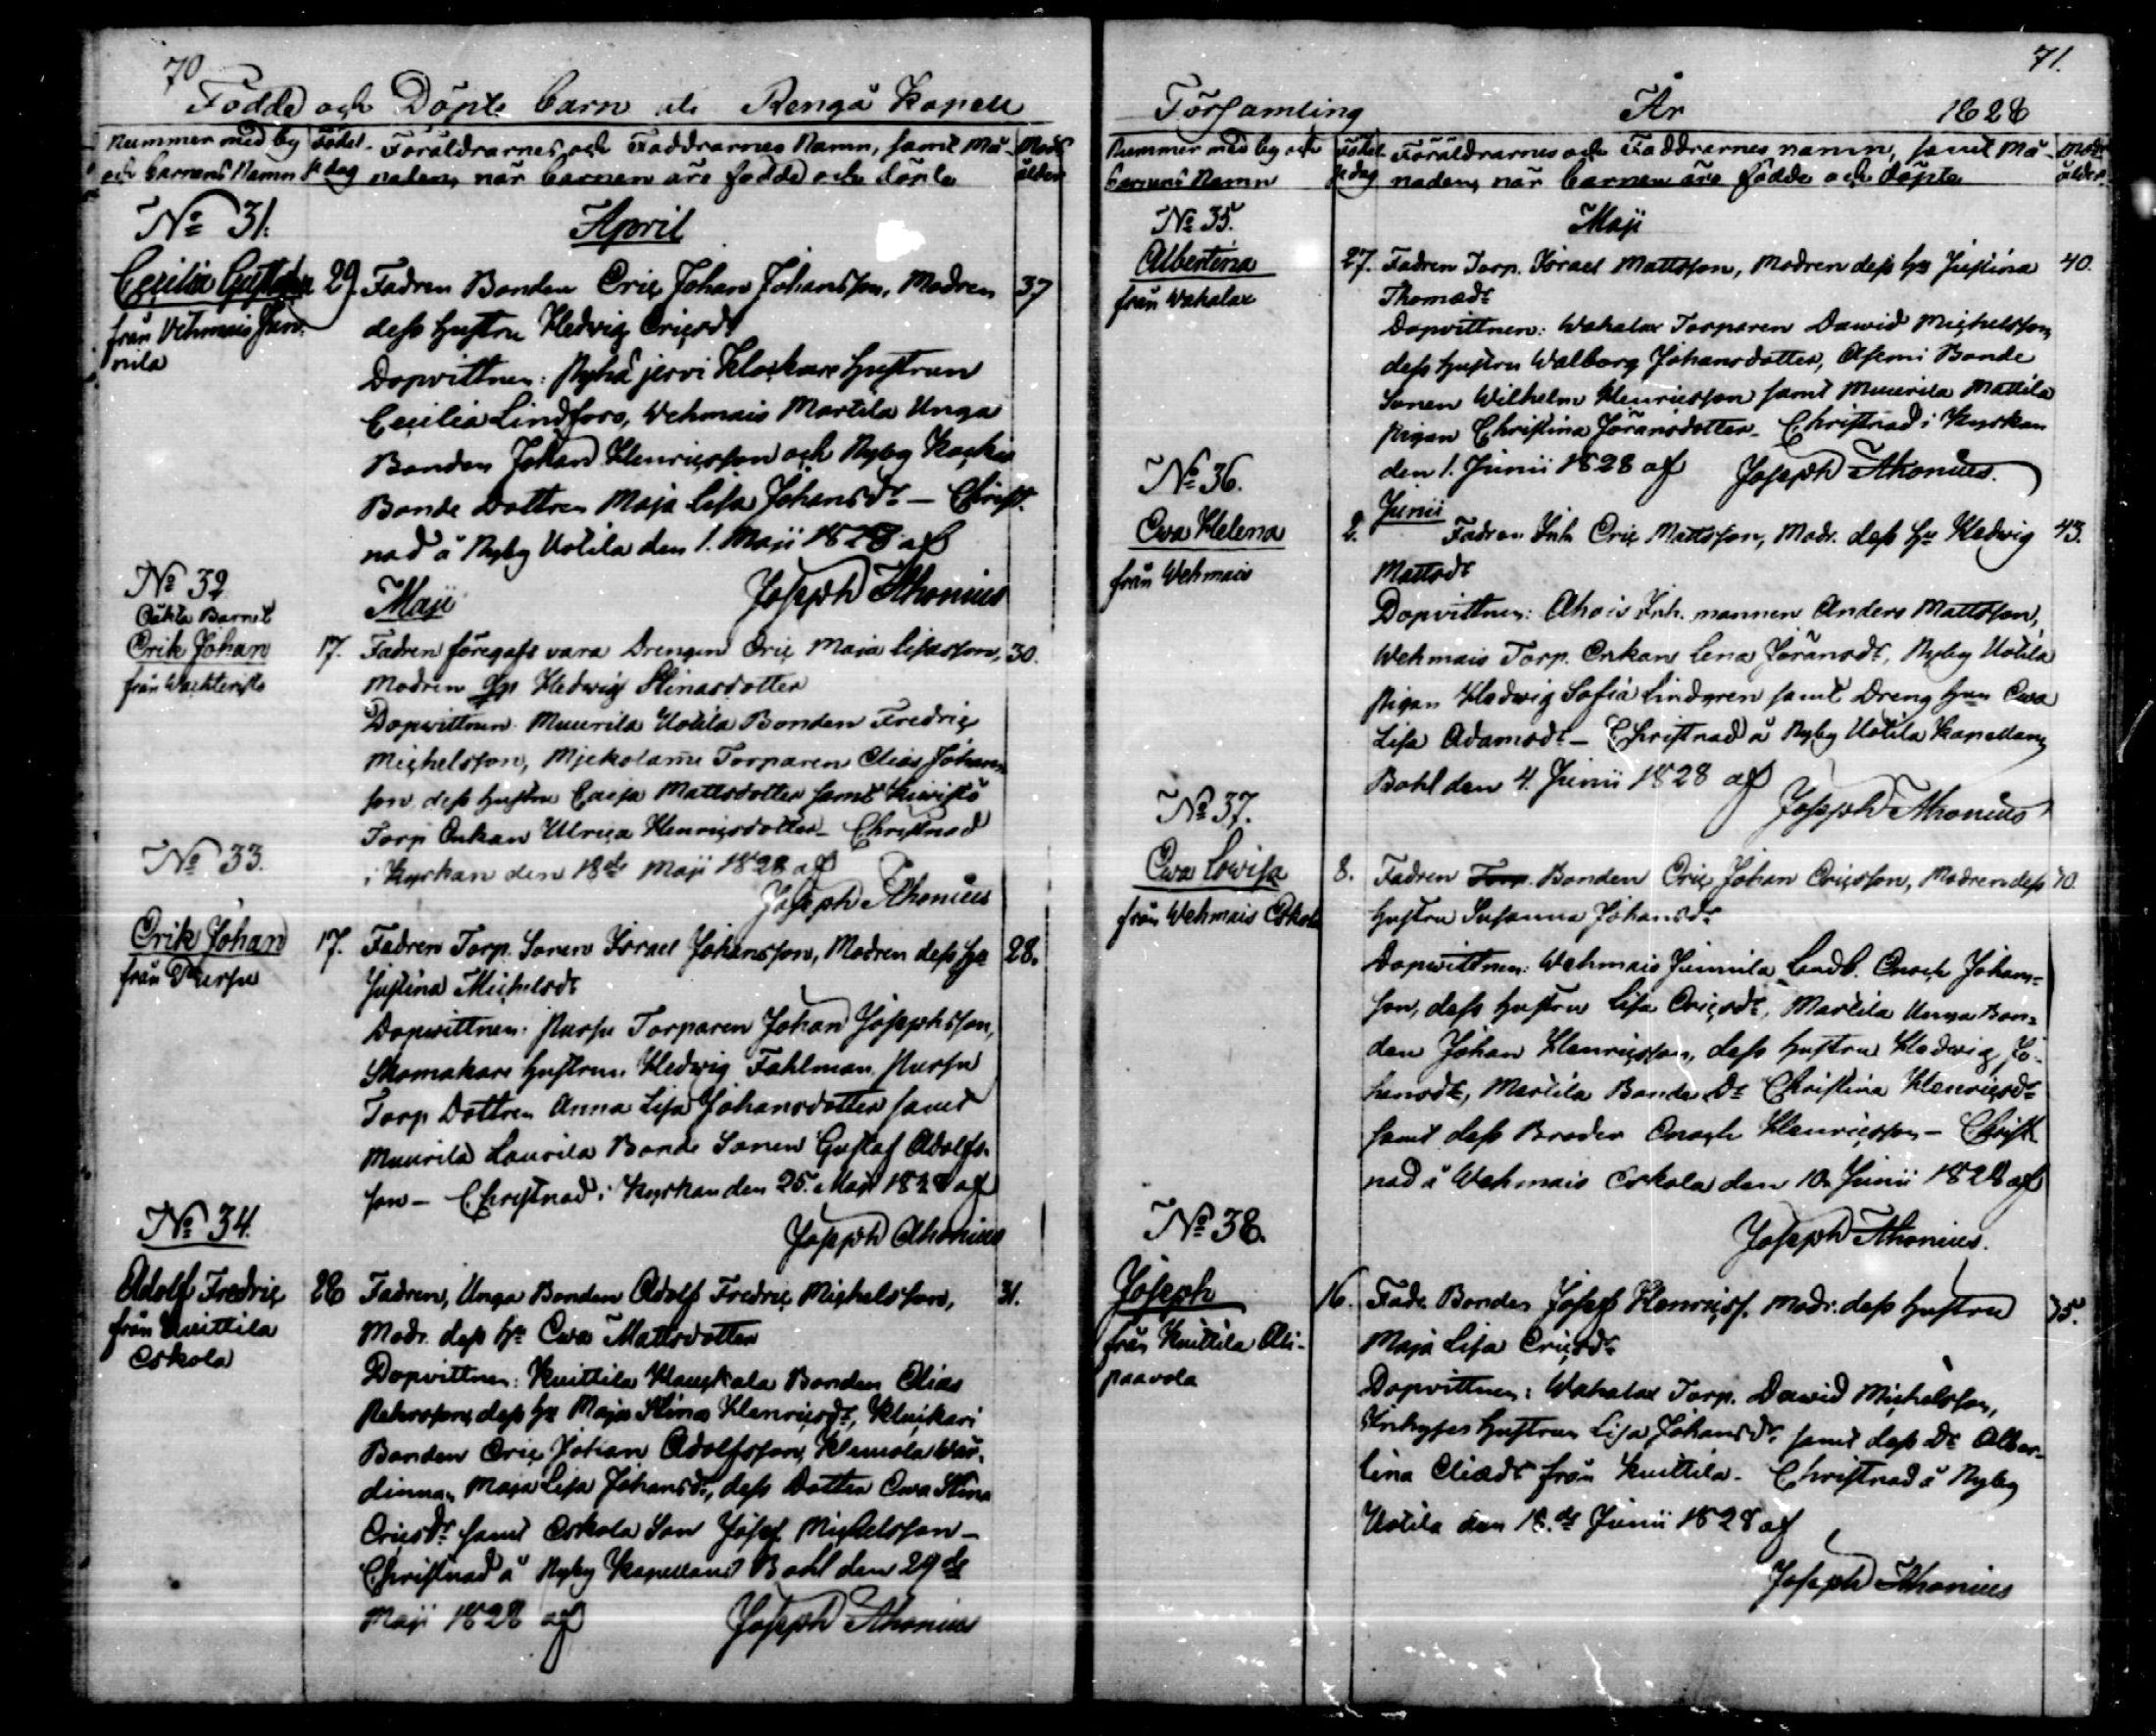 70
Födde och Döpte Barn uti Rengå Kapell
Nummer med by och Barnens Namn
Födelsedag
Föräldrarnes och Faddrarnes Namn, samt Må-
naden, när Barnen äro födde och döpte
Mods ålder
April
No 31.
Cecilia Gustava
från Vehmais Jun
nila
29. Fadren Bonden Eric Johan Johansson, Modren 37
dess hustru Hedvig Ericsdr
Dopvittnen: Pyhäjervi Klockare hustrun
Cecilia Lindfors, Wehmais Martila Unga
Bonden Johan Henricsson och Nyby
Bonde Dottren Maja Lisa Johansdr — Christ-
nad å Nyby Uotila den 1. Maji 1828 af
Joseph Ahonius
Maji
No 32
Oäkta Barnet
Erik Johan
från
17. Fadren föregafs vara Drengen Eric Maja Lisasson, 30.
Modren Hedwig Stinasdotter
Dopvittnen: Muurila Uotila Bonden Fredric
Michelsson, Torparen Elias Johans
son dess hustru Caisa Mattsdotter samt
Torp Enkan Ulrica Henricsdotter — Christnad
i Kyrkan den 18de Maji 1828 af
Joseph Ahonius
No 33.
Erik Johan
från Pursu
17. Fadren Torp. Sonen Israel Johansson, Modren dess hu 28.
Justina Michelsdr
Dopvittnen: Pursu Torparen Johan Josephsson,
Skomakare hustrun Hedwig Fahlman, Pursu
Torp Dottren Anna Lisa Johansdotter samt
Muurila Laurila Bonde Sonen Gustaf Adolfs-
son — Christnad i Kyrkan den 25. Maji 1828 af
Joseph Ahonius
No 34.
Adolf Fredric
från Kuittila
Eskola
28 Fadren, Unga Bonden Adolf Fredric Michelsson, 31.
Modr. dess hu Ewa Mattsdotter
Dopvittnen: Kuittila Bonden Elias
dess hu Maja Stina Henricsdr,
Bonden Eric Johan Adolfsson, Wär-
dinnan Maja Lisa Johansdr, dess Dotter Ewa Stina
Ericsdr samt Eskola Son Josef Michelsson —
Christnad å Nyby Kapellans Bohl den 29de
Maji 1828 af Joseph Ahonius
71.
Församling År 1828
Nummer med by och
Barnens Namn
Födelsedag
Föräldrarnes och Faddrarnes namn, samt Må-
naden, när Barnen äro födde och döpte
Modr ålder
Maji
No 35.
Albertina
från Wahalax
27. Fadren Torp. Israel Mattsson, Modren dess hu Justina 40.
Thomasdr
Dopvittnen: Wahalax Torparen Dawid Michelsson,
dess hustru Walborg Johansdotter, Bonde
Sonen Wilhelm Henricsson samt Muurila Mattila
Pigan Christina Göransdotter — Christnad i Kyrkan
den 1. Junii 1828 af Joseph Ahonius.
Junii
No 36.
Ewa Helena
från Wehmais
2. Fadren Inh. Eric Mattsson, Modr. dess hu Hedwig 43.
Mattsdr
Dopvittnen: Inh. mannen Anders Mattsson,
Wehmais Torp. Enkan Lena Göransdr, Nyby Uotila
Pigan Hedwig Sofia Lindgren samt Dreng hun Ewa
Lisa Adamsdr — Christnad å Nyby Uotila Kapellans
Bohl den 4. Junii 1828 af
Joseph Ahonius
No 37.
Ewa Lowisa
från Wehmais Eskola
8. Fadren Torp. Bonden Eric Johan Ericsson, Modren dess 40.
hustru Susanna Johansdr
Dopwittnen: Wehmais Junnila Landb. Enoch Johans-
son, dess hustru Lisa Ericsdr, Martila Unga Bon-
den Johan Henricsson, dess hustru Hedwig Jo-
hansdr, Martila Bonde Dr Christina Henricsdr
samt dess Broder Enoch Henricsson — Christ-
nad å Wehmais Eskola den 10. Junii 1828 af
Joseph Ahonius.
No 38.
Joseph
från Kuittila Ali-
paavola
16. Fadr. Bonden Josef Henricss. Modr. dess hustru 35.
Maja Lisa Ericsdr
Dopvittnen: Wahalax Torp. Dawid Michelsson,
Inhyses hustrun Lisa Johansdr samt dess Dr Alber-
tina Eliasdr från Kuittila — Christnad å Nyby
Uotila den 18.de Junii 1828 af
Joseph Ahonius